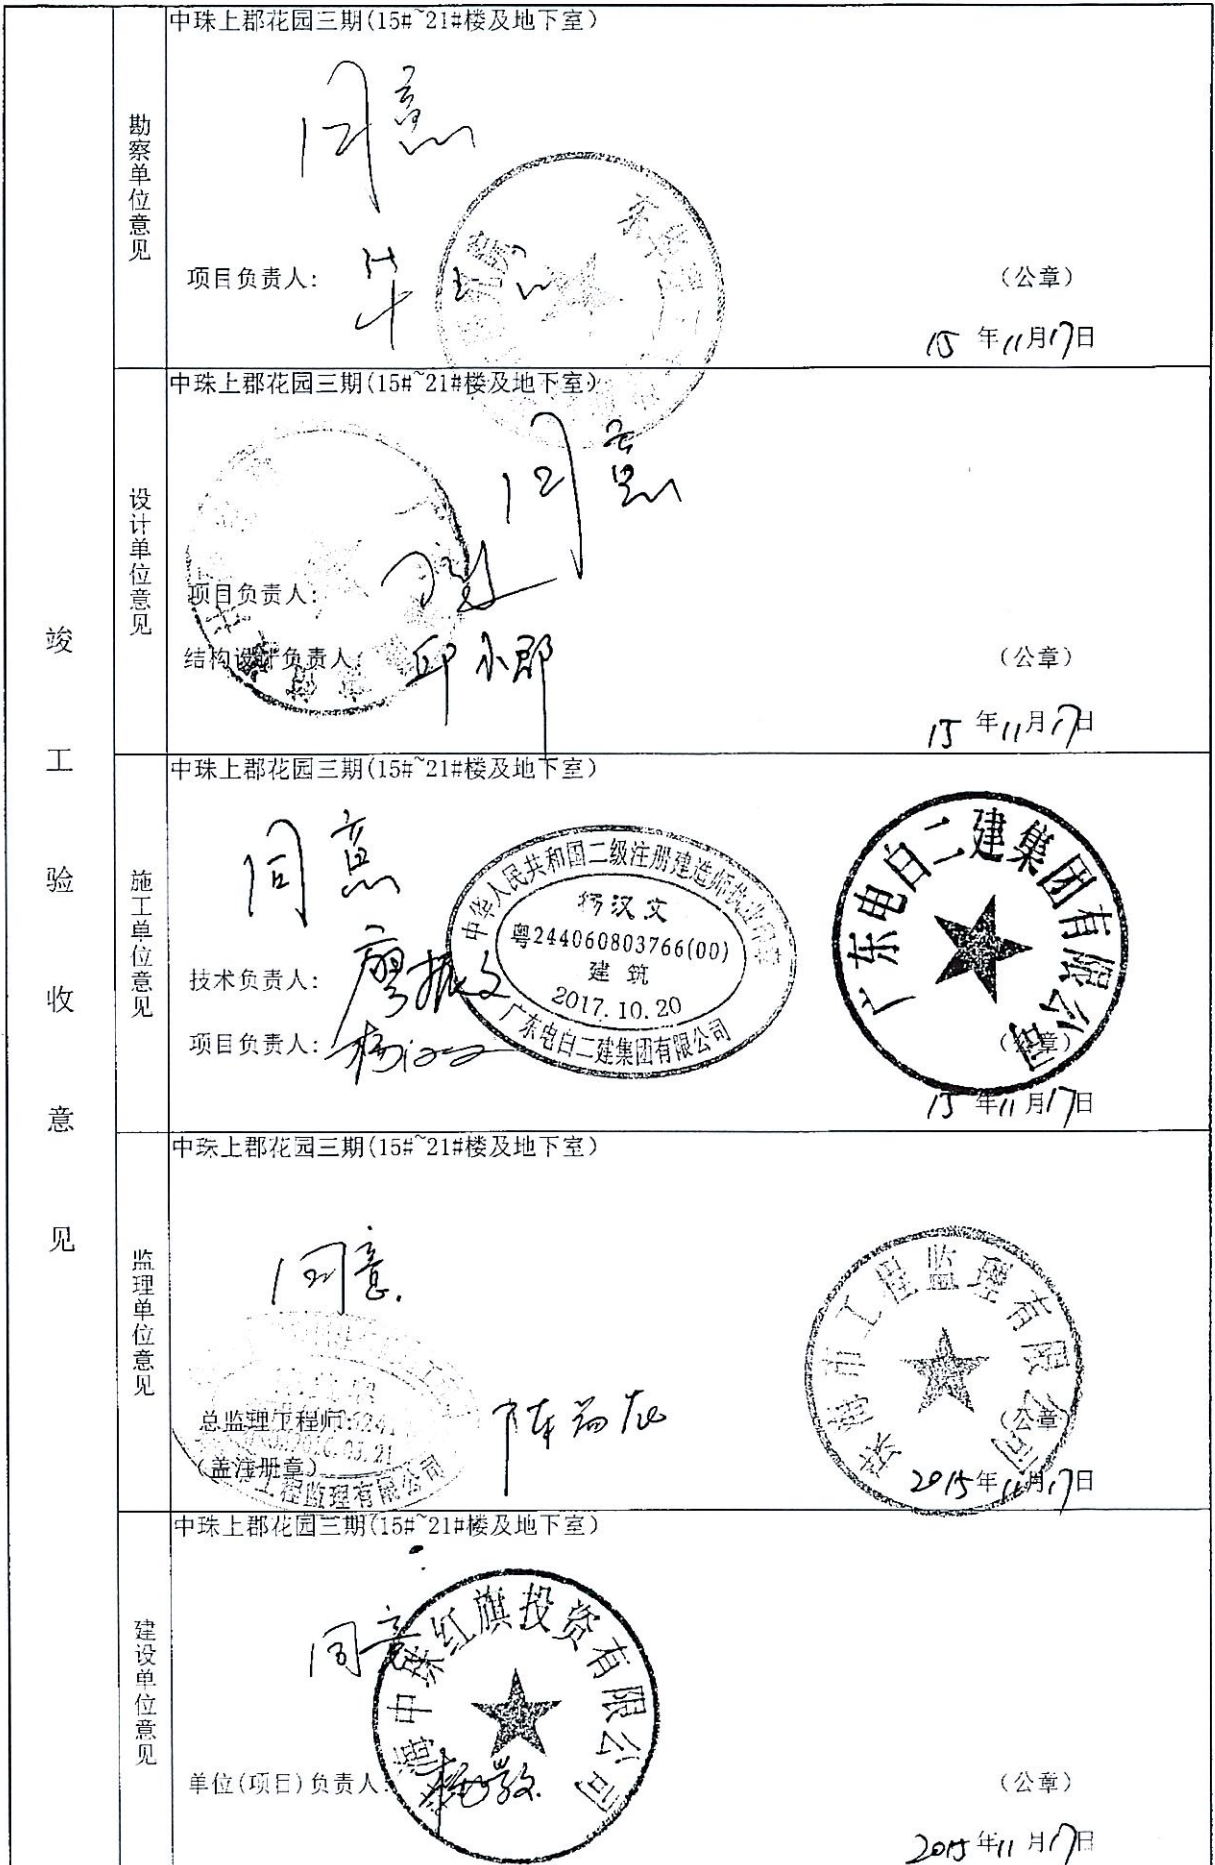 竣工验收意见
勘察单位意见
中珠上郡花园三期(15#~21#楼及地下室)
同意
项目负责人:
(公章)
15年11月17日
设计单位意见
中珠上郡花园三期(15#~21#楼及地下室)
同意
项目负责人:
结构设计负责人: 邱小郡
(公章)
15年11月17日
施工单位意见
中珠上郡花园三期(15#~21#楼及地下室)
同意
中华人民共和国二级注册建造师执业印章
杨汉文
粤244060803766(00)
建筑
2017.10.20
广东电白二建集团有限公司
广东电白二建集团有限公司
技术负责人: 廖振文
项目负责人: 杨汉文
(公章)
15年11月17日
监理单位意见
中珠上郡花园三期(15#~21#楼及地下室)
同意.
珠海市工程监理有限公司
总监理工程师:
(盖注册章)
工程监理有限公司
(公章)
2015年11月17日
建设单位意见
中珠上郡花园三期(15#~21#楼及地下室)
同意
海中珠红旗投资有限公司
单位(项目)负责人:
(公章)
2015年11月17日